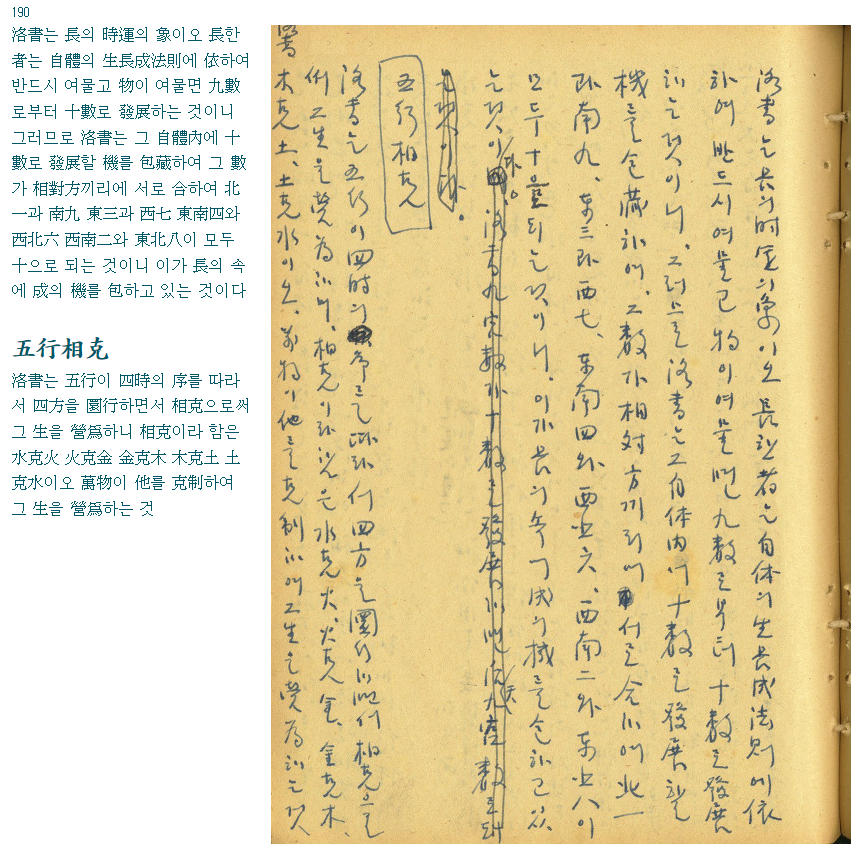 190
洛書는 長의 時運의 象이오 長한
者는 自體의 生長成法則에 依하여
반드시 여물고 物이 여물면 九數
로부터 十數로 發展하는 것이니
그러므로 洛書는 그 自體內에 十
數로 發展할 機를 包藏하여 그 數
가 相對方끼리에 서로 合하여 北
一과 南九 東三과 西七 東南四와
西北六 西南二와 東北八이 모두
十으로 되는 것이니 이가 長의 속
에 成의 機를 包하고 있는 것이다
五行相克
洛書는 五行이 四時의 序를 따라
서 四方을 圜行하면서 相克으로써
그 生을 營爲하니 相克이라 함은
水克火 火克金 金克木 木克土 土
克水이오 萬物이 他를 克制하여
그 生을 營爲하는 것
洛書는 長의 時運의 象이오 長한 者는 自体의 生長成法則에 依
하여 반드시 여물고 物이 여물면 九數로부터 十數로 發展
하는 것이니、그러므로 洛書는 그 自体内에 十數로 發展할
機를 包藏하여、그 數가 相対方끼리에 서로 合하여 北一
과 南九、東三과 西七、東南四와 西北六、西南二와 東北八이
모두 十으로 되는 것이니、이가 長의 속에 成의 機를 包하고 있
는 것이다。
五行相克
洛書는 五行이 四時의 序를 따라서 四方을 圜行하면서 相克으로
써 그 生을 營為하니、相克이라 함은 水克火、火克金、金克木、
木克土、土克水이오、萬物이 他를 克制하여 그 生을 營為하는 것